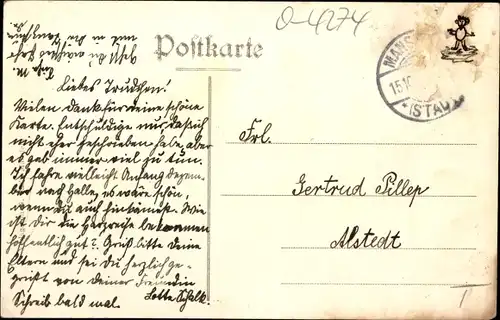 O-4274
Postkarte
MANS
15.10
(STADT)
Liebes Trudchen!
Vielen Dank für deine schöne
Karte. Entschuldige nur, daß ich
nicht eher geschrieben habe, aber
es gab immer viel zu tun.
Ich fahre vielleicht Anfang Dezem-
ber nach Halle, es wäre schön,
wenn du auch hinkämest. Wie
ist dir die Harzreise bekommen
hoffentlich gut? Grüß bitte deine
Eltern und sei du herzlich ge-
grüßt von deiner Freundin
Schreib bald mal. Lotte Schalk.
Frl.
Gertrud Pillep
Alstedt